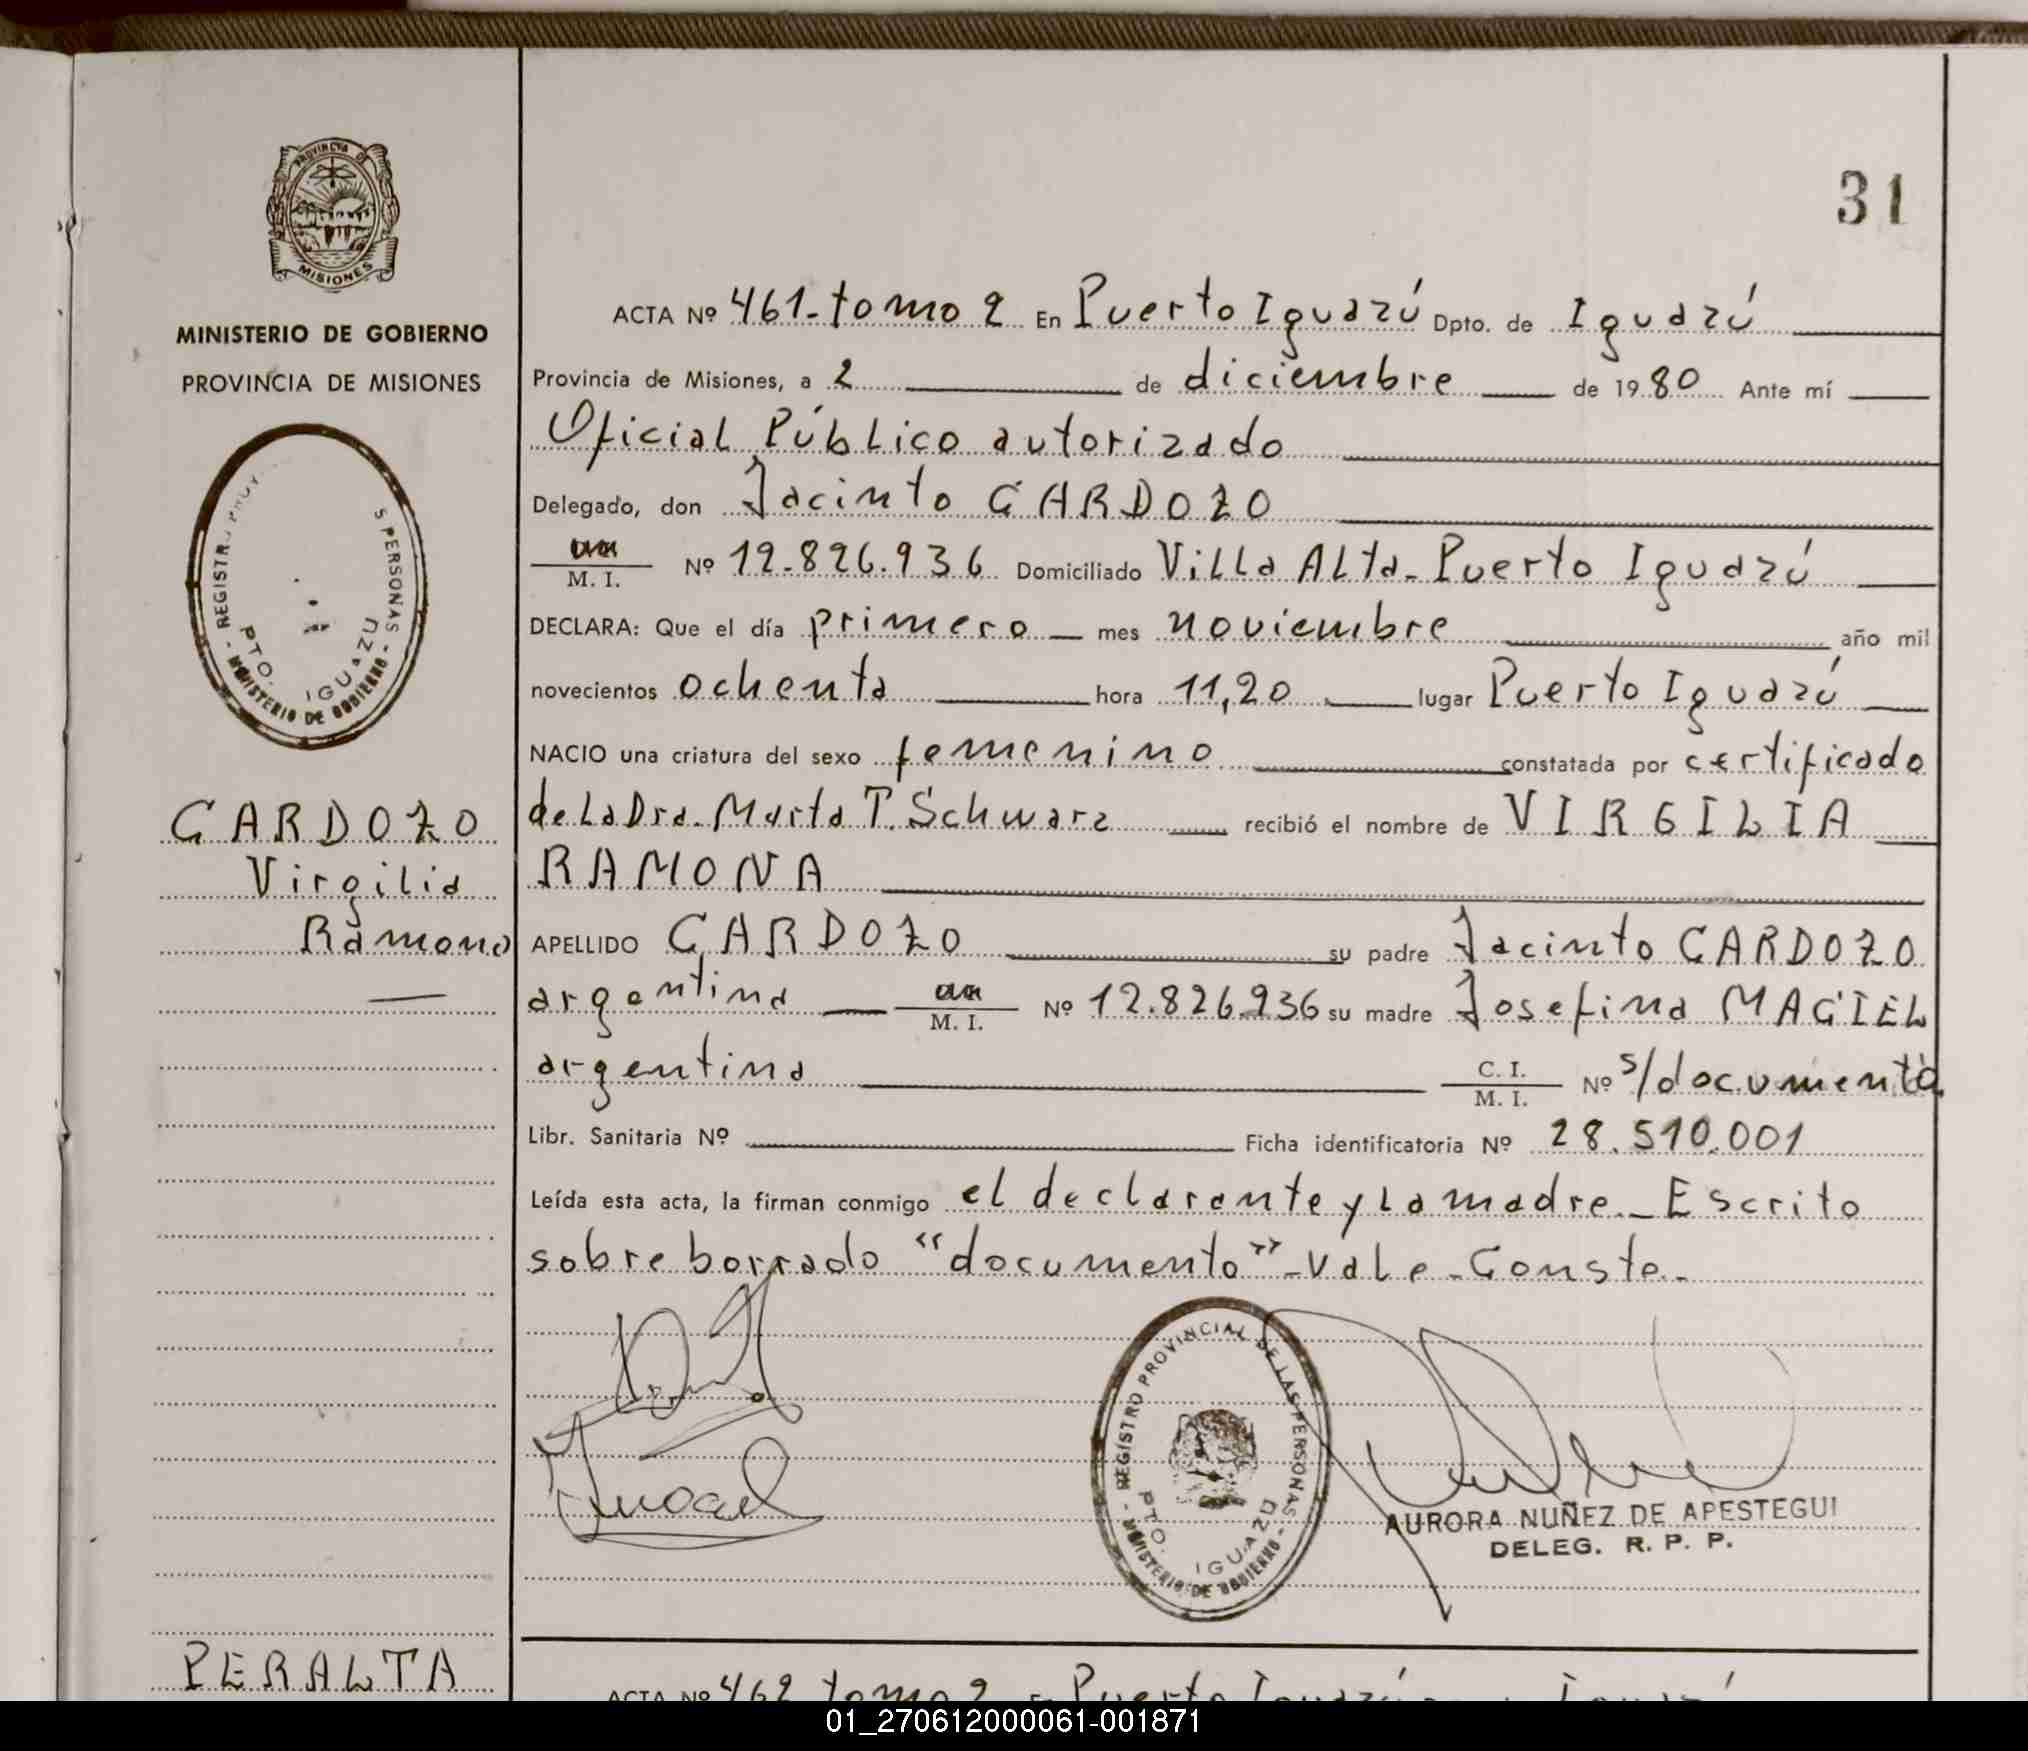 PROVINCIA DE
MISIONES
MINISTERIO DE GOBIERNO
PROVINCIA DE MISIONES
S PERSONAS
PTO. IGUAZU
- MINISTERIO DE GOBIERNO -
CARDOZO
Virgilia
Ramona
PERALTA
31
ACTA Nº 461-tomo 2 En Puerto Iguazú Dpto. de Iguazú
Provincia de Misiones, a 2 de diciembre de 1980 Ante mí
Oficial Público autorizado
Delegado, don Jacinto CARDOZO
M. I. Nº 12.826.936 Domiciliado Villa Alta-Puerto Iguazú
DECLARA: Que el día primero mes noviembre año mil
novecientos ochenta hora 11,20 lugar Puerto Iguazú
NACIO una criatura del sexo femenino constatada por certificado
de La Dra. Marta T. Schwarz recibió el nombre de VIRGILIA
RAMONA
APELLIDO CARDOZO su padre Jacinto CARDOZO
argentina M. I. Nº 12.826.936 su madre Josefina MACIEL
argentina C. I. M. I. Nº s/documento
Libr. Sanitaria Nº Ficha identificatoria Nº 28.510.001
Leída esta acta, la firman conmigo el declarante y La madre_Escrito
sobre borrado "documento"-Vale-Conste-
- REGISTRO PROVINCIAL DE LAS PERSONAS -
PTO. IGUAZU
MINISTERIO DE GOBIERNO
AURORA NUÑEZ DE APESTEGUI
DELEG. R. P. P.
ACTA Nº 462 tomo 2 En Puerto Iguazú Iguazú
01_270612000061-001871